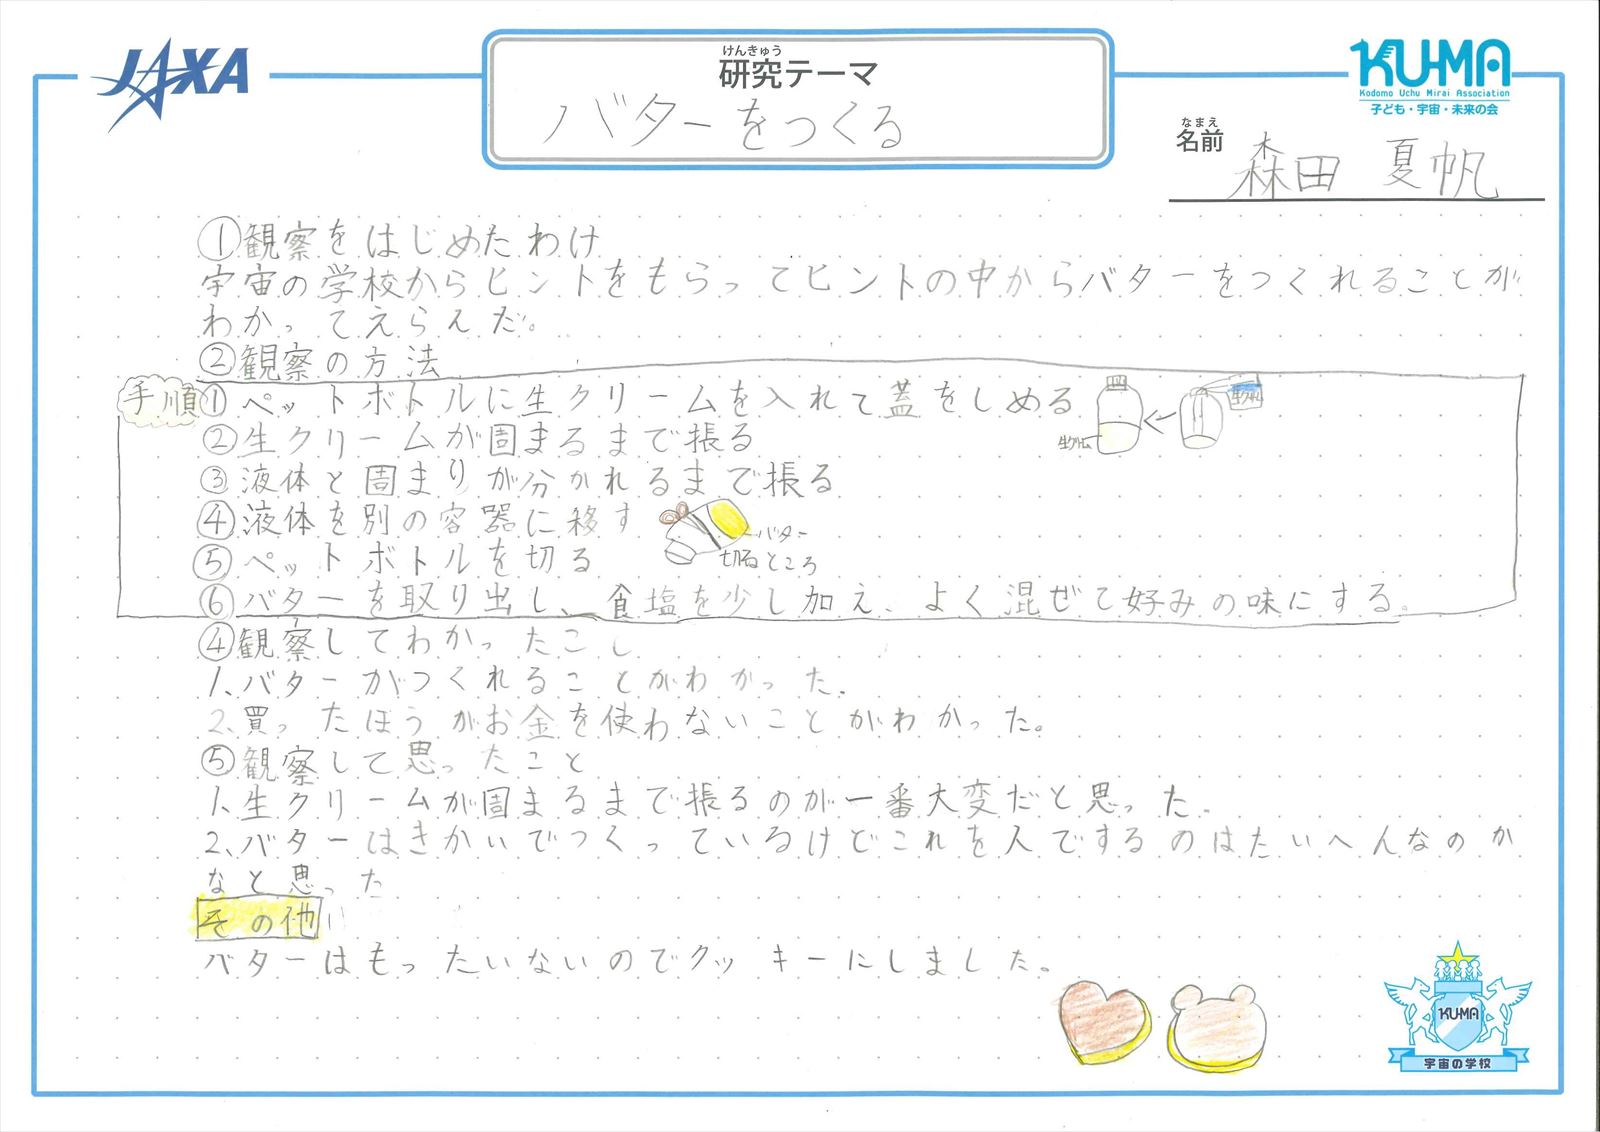 JAXA
けんきゅう
研究テーマ
バターをつくる
KU-MA
Kodomo Uchu Mirai Association
子ども・宇宙・未来の会
なまえ
名前
森田 夏帆
①観察をはじめたわけ
宇宙の学校からヒントをもらってヒントの中からバターをつくれることが
わかってえらんだ。
②観察の方法
手順
①ペットボトルに生クリームを入れて蓋をしめる
生クリーム
生クリーム
②生クリームが固まるまで振る
③液体と固まりが分かれるまで振る
④液体を別の容器に移す
バター
切るところ
⑤ペットボトルを切る
⑥バターを取り出し、食塩を少し加え、よく混ぜて好みの味にする。
④観察してわかったこし
1、バターがつくれることがわかった。
2、買ったほうがお金を使わないことがわかった。
⑤観察して思ったこと
1、生クリームが固まるまで振るのが一番大変だと思った。
2、バターはきかいでつくっているけどこれを人でするのはたいへんなのか
なと思った
その他
バターはもったいないのでクッキーにしました。
KU-MA
宇宙の学校